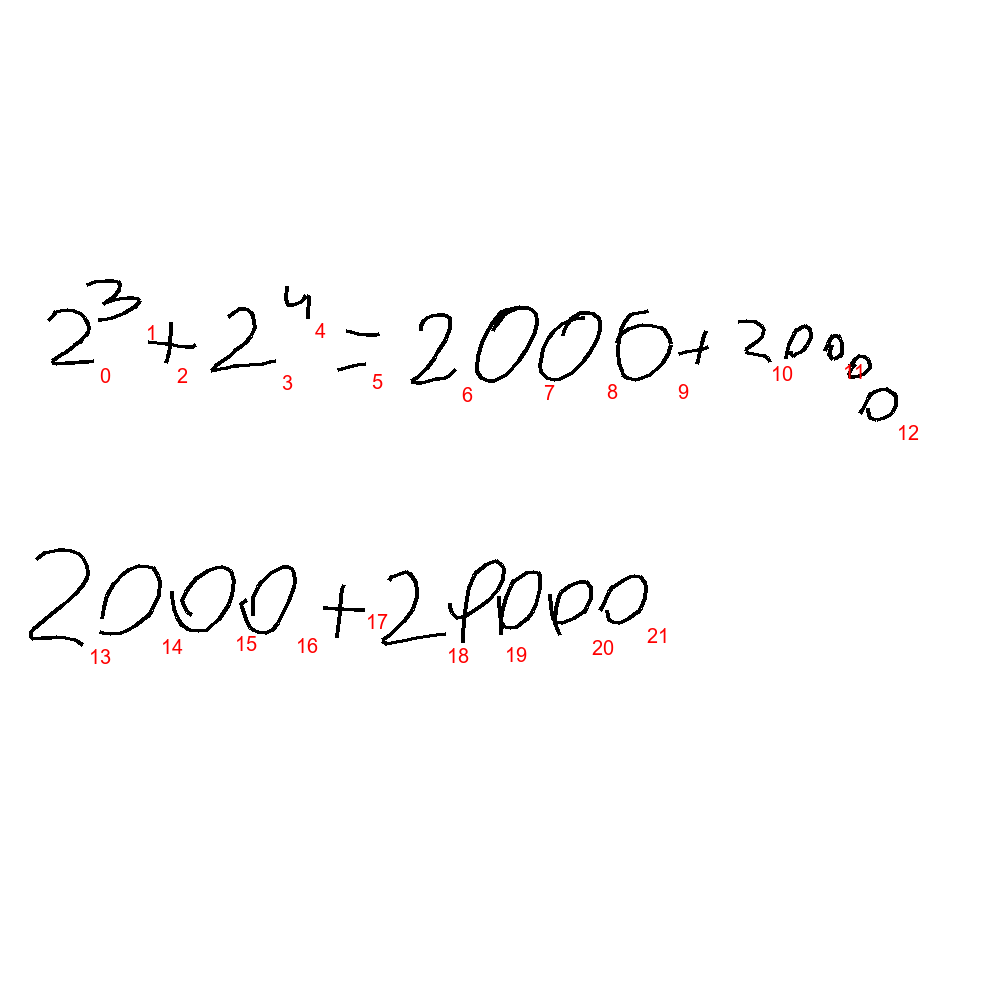 2³ + 2⁴ = 2006 + 20000
0 1 2 3 4 5 6 7 8 9 10 11 12
2000 + 20000
13 14 15 16 17 18 19 20 21